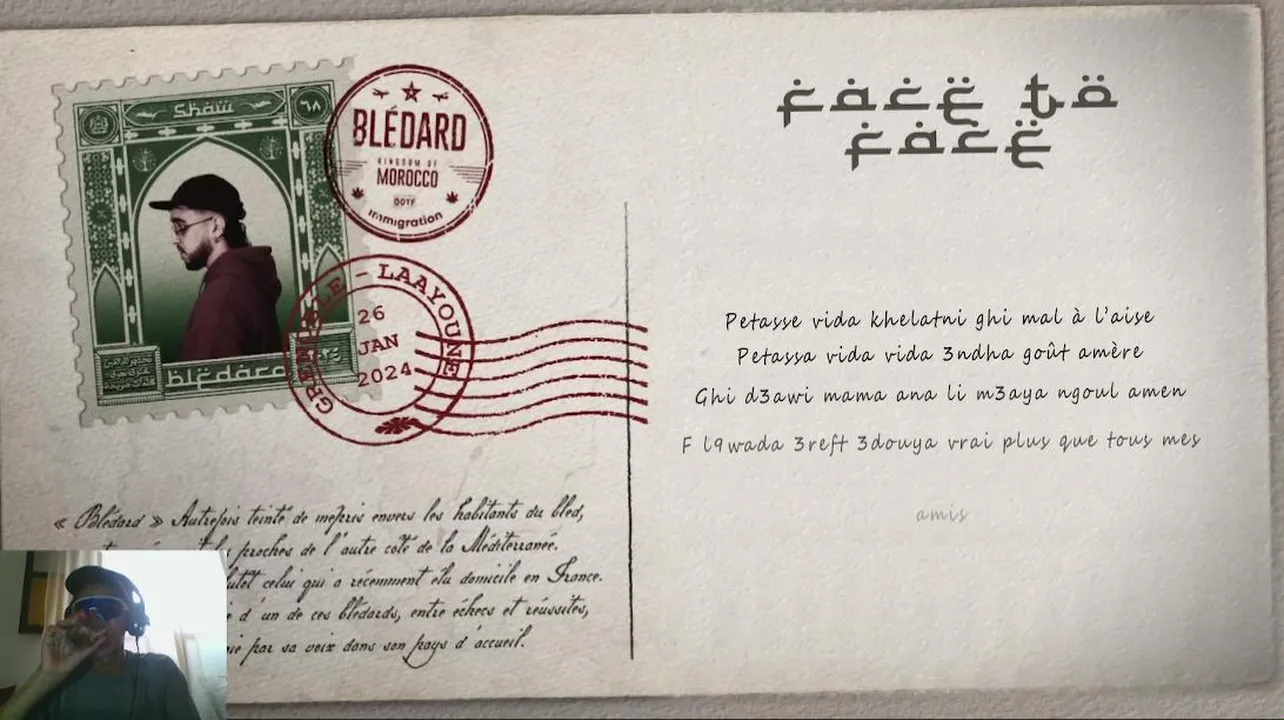 Shaw
٦٨
blëdard
BLÉDARD
KINGDOM OF
MOROCCO
Immigration
GRENOBLE - LAAYOUNE
26
JAN
2024
« Blédard » Autrefois teinté de mépris envers les habitants du bled,
proches de l'autre côté de la Méditerranée.
celui qui a récemment élu domicile en France.
d'un de ces blédards, entre échecs et réussites,
par sa voix dans son pays d'accueil.
face to
face
Petasse vida khelatni ghi mal à l'aise
Petassa vida vida 3ndha goût amère
Ghi d3awi mama ana li m3aya ngoul amen
F l9wada 3reft 3douya vrai plus que tous mes
amis